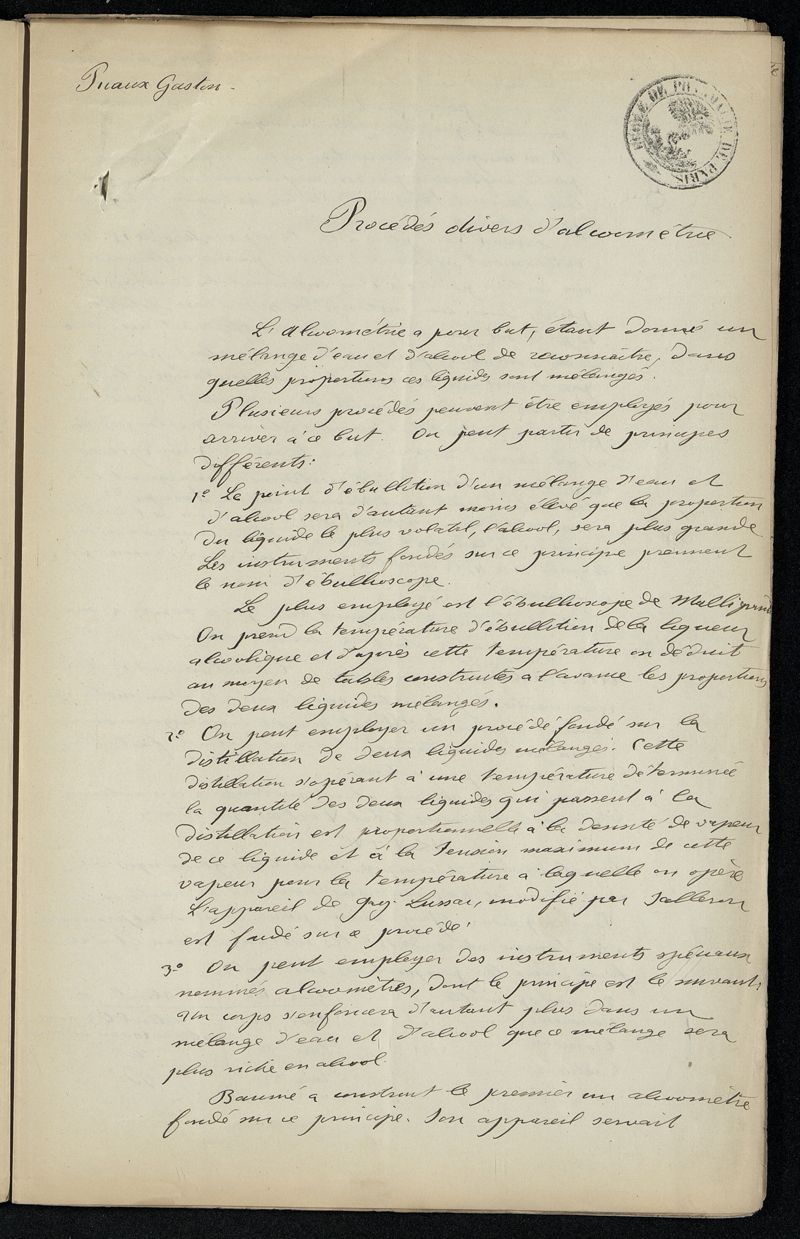 Puaux Gaston -
ECOLE DE PHARMACIE DE PARIS
Procédés divers d'alcoométrie
L'Alcoométrie a pour but, étant donné un
mélange d'eau et d'alcool de reconnaître, dans
quelles proportions ces liquides sont mélangés.
Plusieurs procédés peuvent être employés pour
arriver à ce but. On peut partir de principes
différents:
1º Le point d'ébullition d'un mélange d'eau et
d'alcool sera d'autant moins élevé que la proportion
du liquide le plus volatil, l'alcool, sera plus grande
Les instruments fondés sur ce principe prennent
le nom d'ébullioscope.
Le plus employé est l'ébullioscope de Malligand
On prend la température d'ébullition de la liqueur
alcoolique et d'après cette température on déduit
au moyen de tables construites à l'avance les proportions
des deux liquides mélangés.
2º On peut employer un procédé fondé sur la
distillation de deux liquides mélangés. Cette
distillation s'opérant à une température déterminée
la quantité des deux liquides qui passent à la
distillation est proportionnelle à la densité de vapeur
de ce liquide et à la tension maximum de cette
vapeur pour la température à laquelle on opère
L'appareil de Gay-Lussac, modifié par Salleron
est fondé sur ce procédé.
3º On peut employer des instruments spéciaux
nommés alcoomètres, dont le principe est le suivant:
Un corps s'enfoncera d'autant plus dans un
mélange d'eau et d'alcool que ce mélange sera
plus riche en alcool.
Baumé a construit le premier un alcoomètre
fondé sur ce principe. Son appareil servait